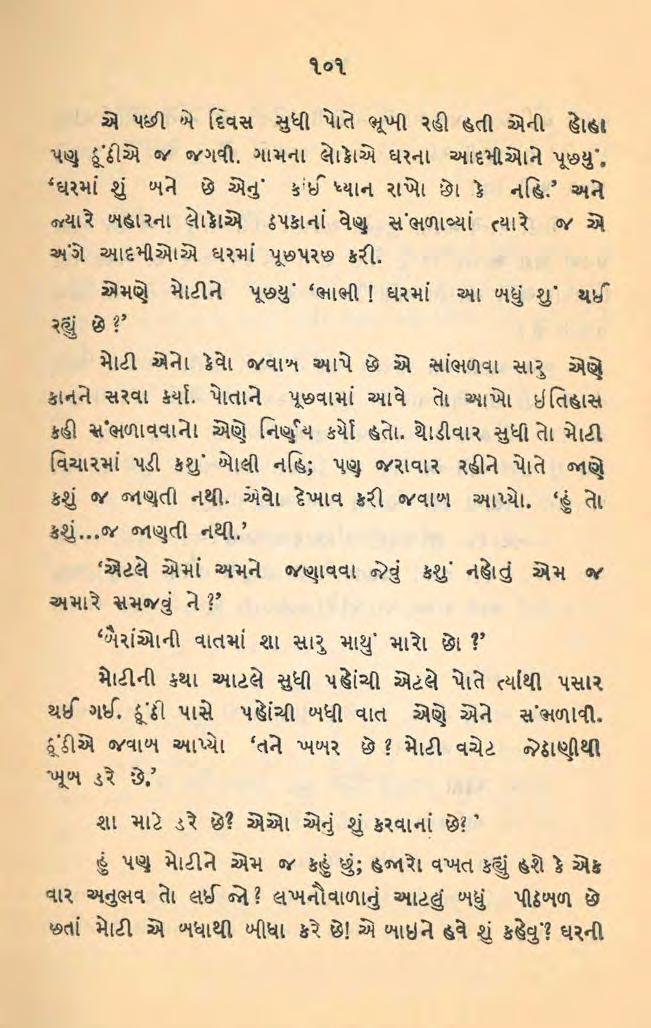 ૧૦૧
એ પછી બે દિવસ સુધી પોતે ભૂખી રહી હતી એની હોહા
પણ ઠૂંઠીએ જ જગવી. ગામના લોકોએ ઘરના આદમીઓને પૂછયું.
‘ઘરમાં શું બને છે એનું કંઈ ધ્યાન રાખો છો કે નહિ.’ અને
જ્યારે બહારના લોકોએ ઠપકાનાં વેણ સંભળાવ્યાં ત્યારે જ એ
અંગે આદમીઓએ ઘરમાં પૂછપરછ કરી.
એમણે મોટીને પૂછયું ‘ભાભી ! ઘરમાં આ બધું શું થઈ
રહ્યું છે ?’
મોટી એનો કેવો જવાબ આપે છે એ સાંભળવા સારુ એણે
કાનને સરવા કર્યા. પોતાને પૂછવામાં આવે તો આખો ઇતિહાસ
કહી સંભળાવવાનો એણે નિર્ણય કર્યો હતો. થોડીવાર સુધી તો મોટી
વિચારમાં પડી કશું બોલી નહિ; પણ જરાવાર રહીને પોતે જાણે
કશું જ જાણતી નથી. એવો દેખાવ કરી જવાબ આપ્યો. ‘હું તો
કશું...જ જાણતી નથી.’
‘એટલે એમાં અમને જણાવવા જેવું કશું નહોતું એમ જ
અમારે સમજવું ને ?’
‘બૈરાંઓની વાતમાં શા સારુ માથું મારો છો ?’
મોટીની કથા આટલે સુધી પહોંચી એટલે પોતે ત્યાંથી પસાર
થઈ ગઈ. ઠૂંઠી પાસે પહોંચી બધી વાત એણે એને સંભળાવી.
ઠૂંઠીએ જવાબ આપ્યો ‘તને ખબર છે ? મોટી વચેટ જેઠાણીથી
ખૂબ ડરે છે.’
શા માટે ડરે છે? એઓ એનું શું કરવાનાં છે?’
હું પણ મોટીને એમ જ કહું છું; હજારો વખત કહ્યું હશે કે એક
વાર અનુભવ તો લઈ જો ? લખનૌવાળાનું આટલું બધું પીઠબળ છે
છતાં મોટી એ બધાથી બીધા કરે છે! એ બાઇને હવે શું કહેવું? ઘરની